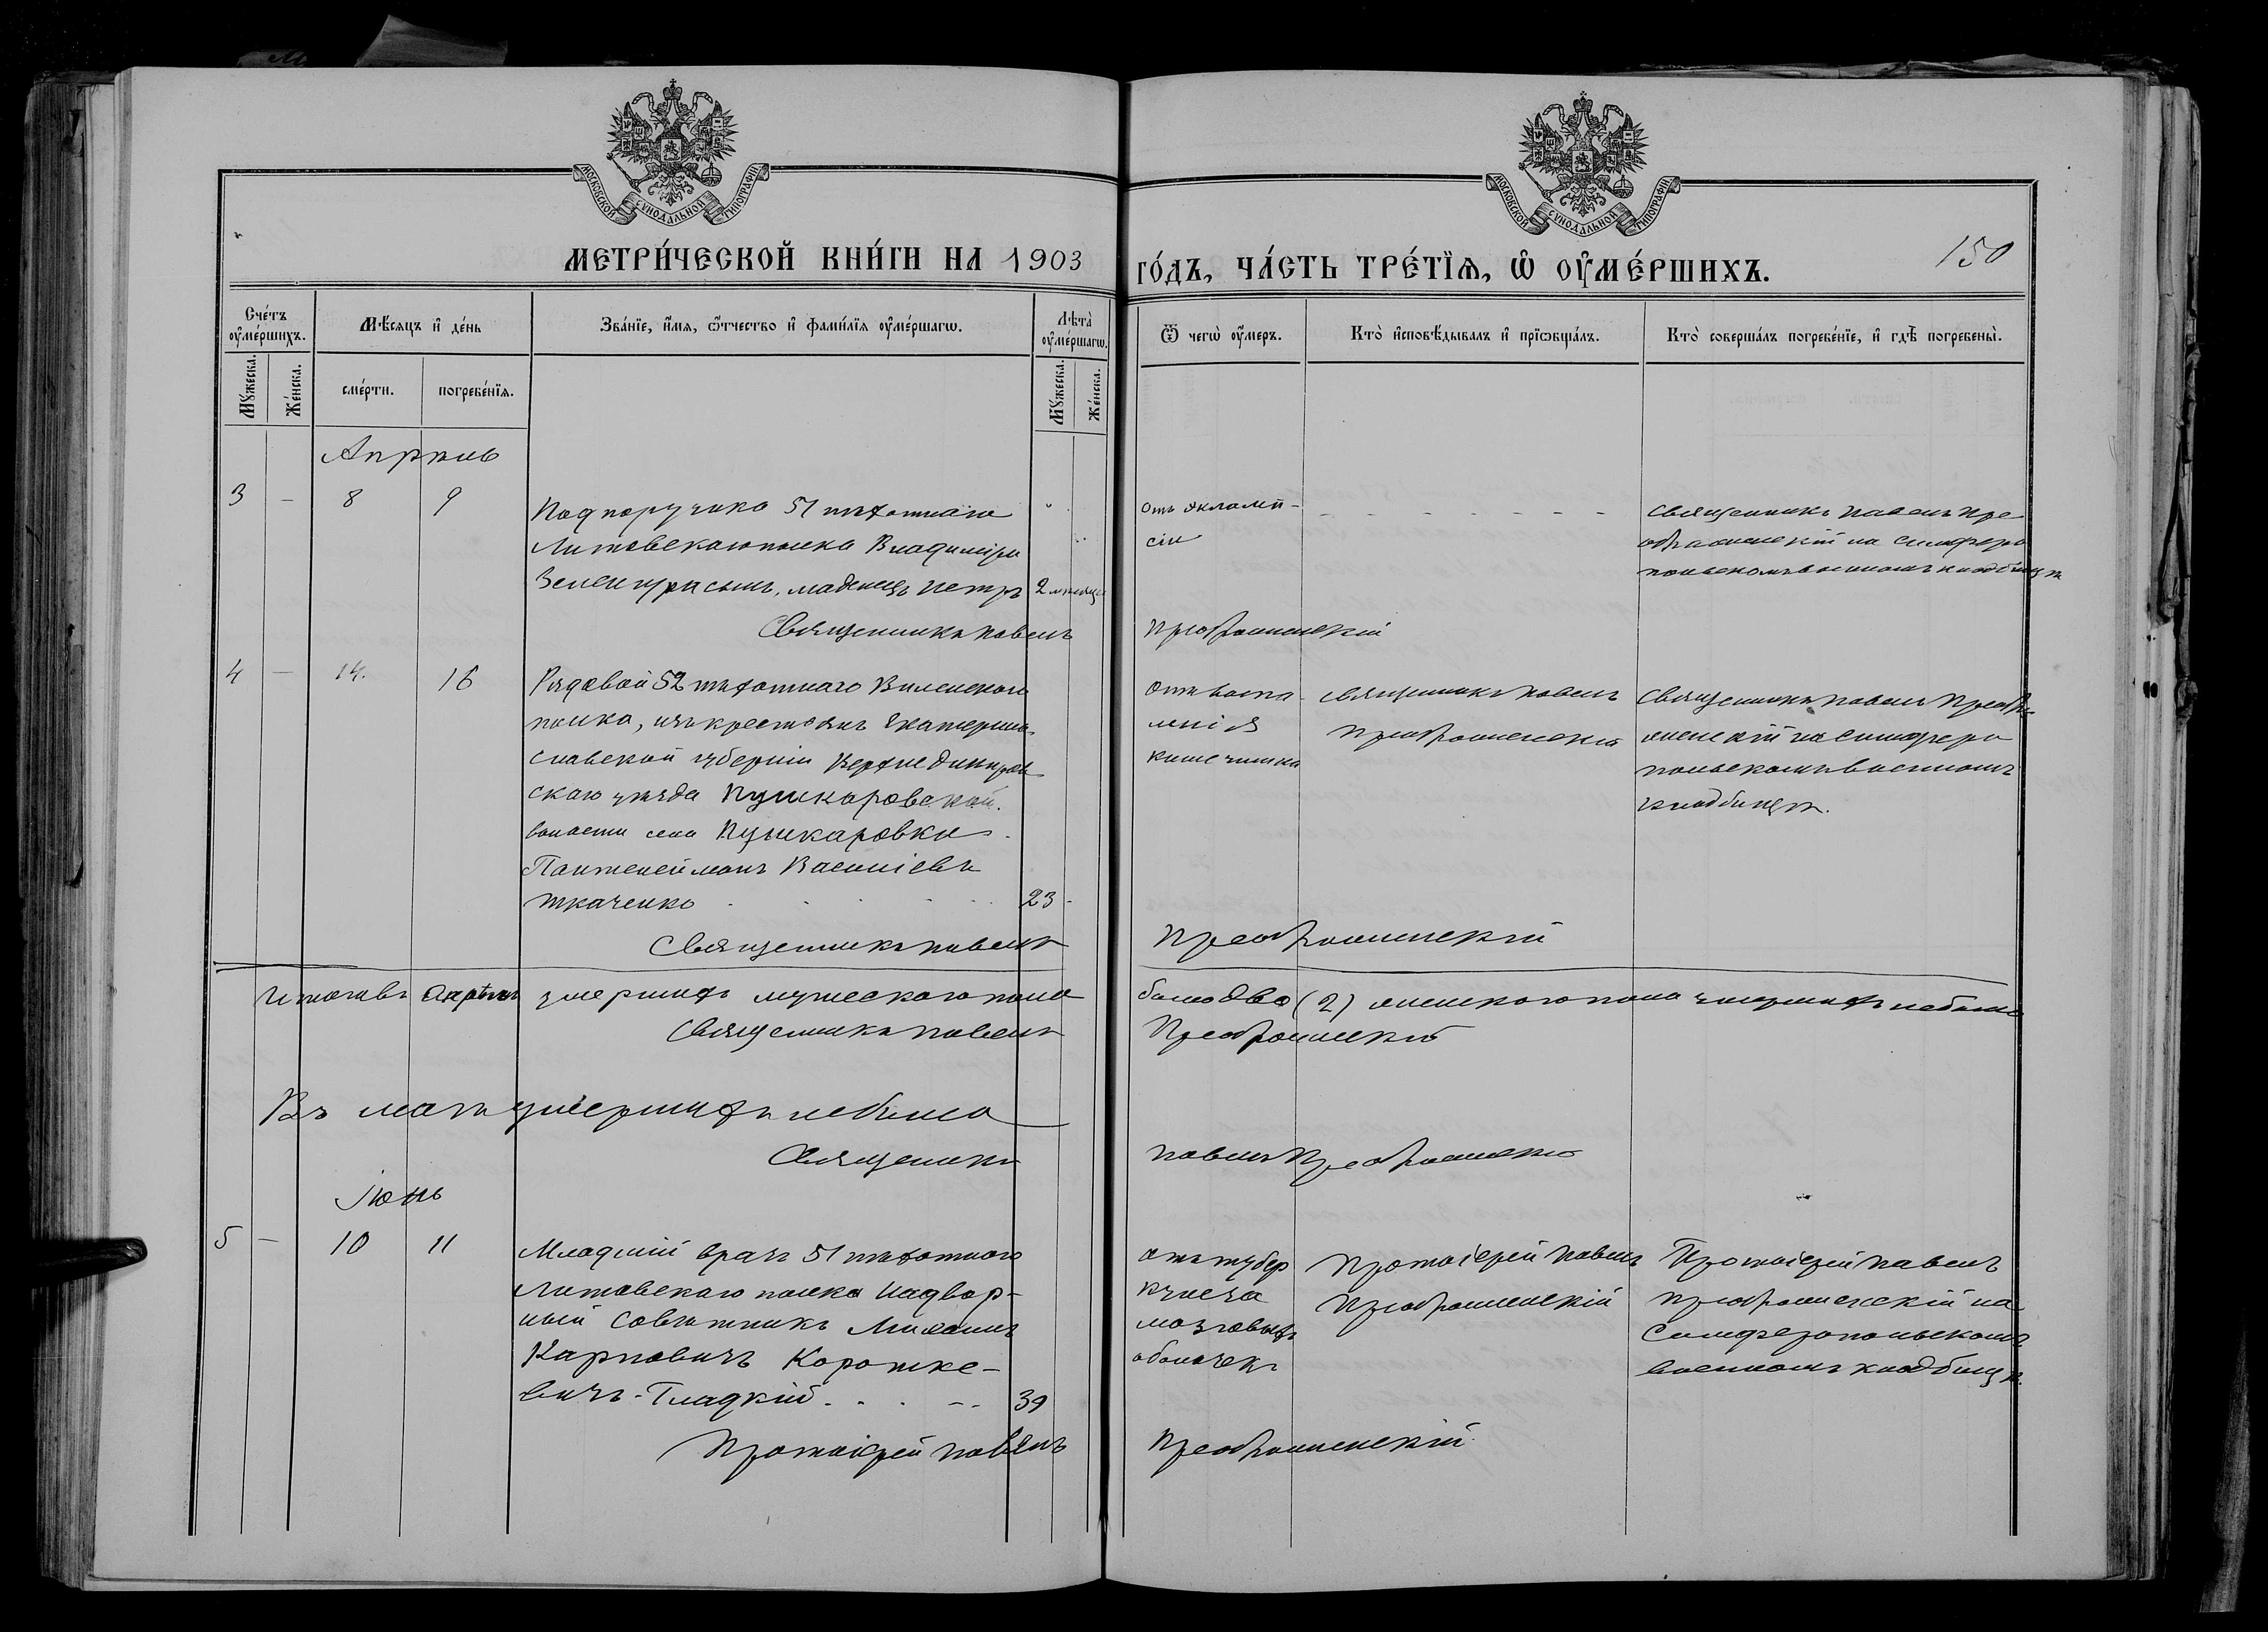 МОСКОВСКОЙ СѴНОДАЛЬНОЙ ТИПОГРАФІИ
МОСКОВСКОЙ СѴНОДАЛЬНОЙ ТИПОГРАФІИ
МЕТРИ́ЧЕСКОЙ КНИ́ГИ НА 1903 ГО́ДЪ, ЧА́СТЬ ТРЕ́ТЇѦ, Ѡ҆ ОУ҆МЕ́РШИХЪ.
150
Сче́тъ оу҆ме́ршихъ.
Мѣ́сѧцъ и҆ де́нь
Зва́нїе, и҆́мѧ, ѻ҆́тчество и҆ фами́лїѧ оу҆ме́ршагѡ.
Лѣ̀та оу҆ме́ршагѡ.
Ѿ чегѡ̀ оу҆́меръ.
Кто̀ и҆сповѣ́дывалъ и҆ прїѡбща́лъ.
Кто̀ соверша́лъ погребе́нїе, и҆ гдѣ̀ погребены̀.
Мꙋ́жеска.
Же́нска.
сме́рти.
погребе́нїѧ.
Мꙋ́жеска.
Же́нска.
Апрѣль
3 - 8 9
Подпоручика 51 пѣхотнаго
Литовскаго полка Владиміра
сынъ, младенецъ Петръ 2 мѣсяца
отъ эклампсіи
Священникъ Павелъ Пре-
ображенскій на Симферо
польскомъ военномъ кладбищѣ
Священникъ Павелъ Преображенскій
4 - 14. 16
Рядовой 52 пѣхотнаго Виленскаго
полка, изъ крестьянъ Екатерино-
славской губерніи Верхнеднѣпров-
скаго уѣзда Пушкаровской
волости села Пушкаровки
Пантелеймонъ Василіевъ
Ткаченко 23
Отъ воспа-
ленія
кишечника
Священникъ Павелъ
Преображенскій
Священникъ Павелъ Преобра-
женскій на Симферо
польскомъ военномъ
кладбищѣ.
Священникъ Павелъ Преображенскій
Итого въ Апрѣлѣ умершихъ мужескаго пола было два (2) женскаго пола умершихъ небыло
Священникъ Павелъ Преображенскій
Въ маѣ умершихъ небыло
Священникъ Павелъ Преображенскій
Іюнь
5 - 10 11
Младшій врачъ 51 пѣхотнаго
Литовскаго полка Надвор-
ный Совѣтникъ Михаилъ
Карповичъ Коротке-
вичъ-Гладкій 39
отъ тубер
кулеза
мозговыхъ
оболочекъ
Протоіерей Павелъ
Преображенскій
Протоіерей Павелъ
Преображенскій на
Симферопольскомъ
военномъ кладбищѣ.
Протоіерей Павелъ Преображенскій